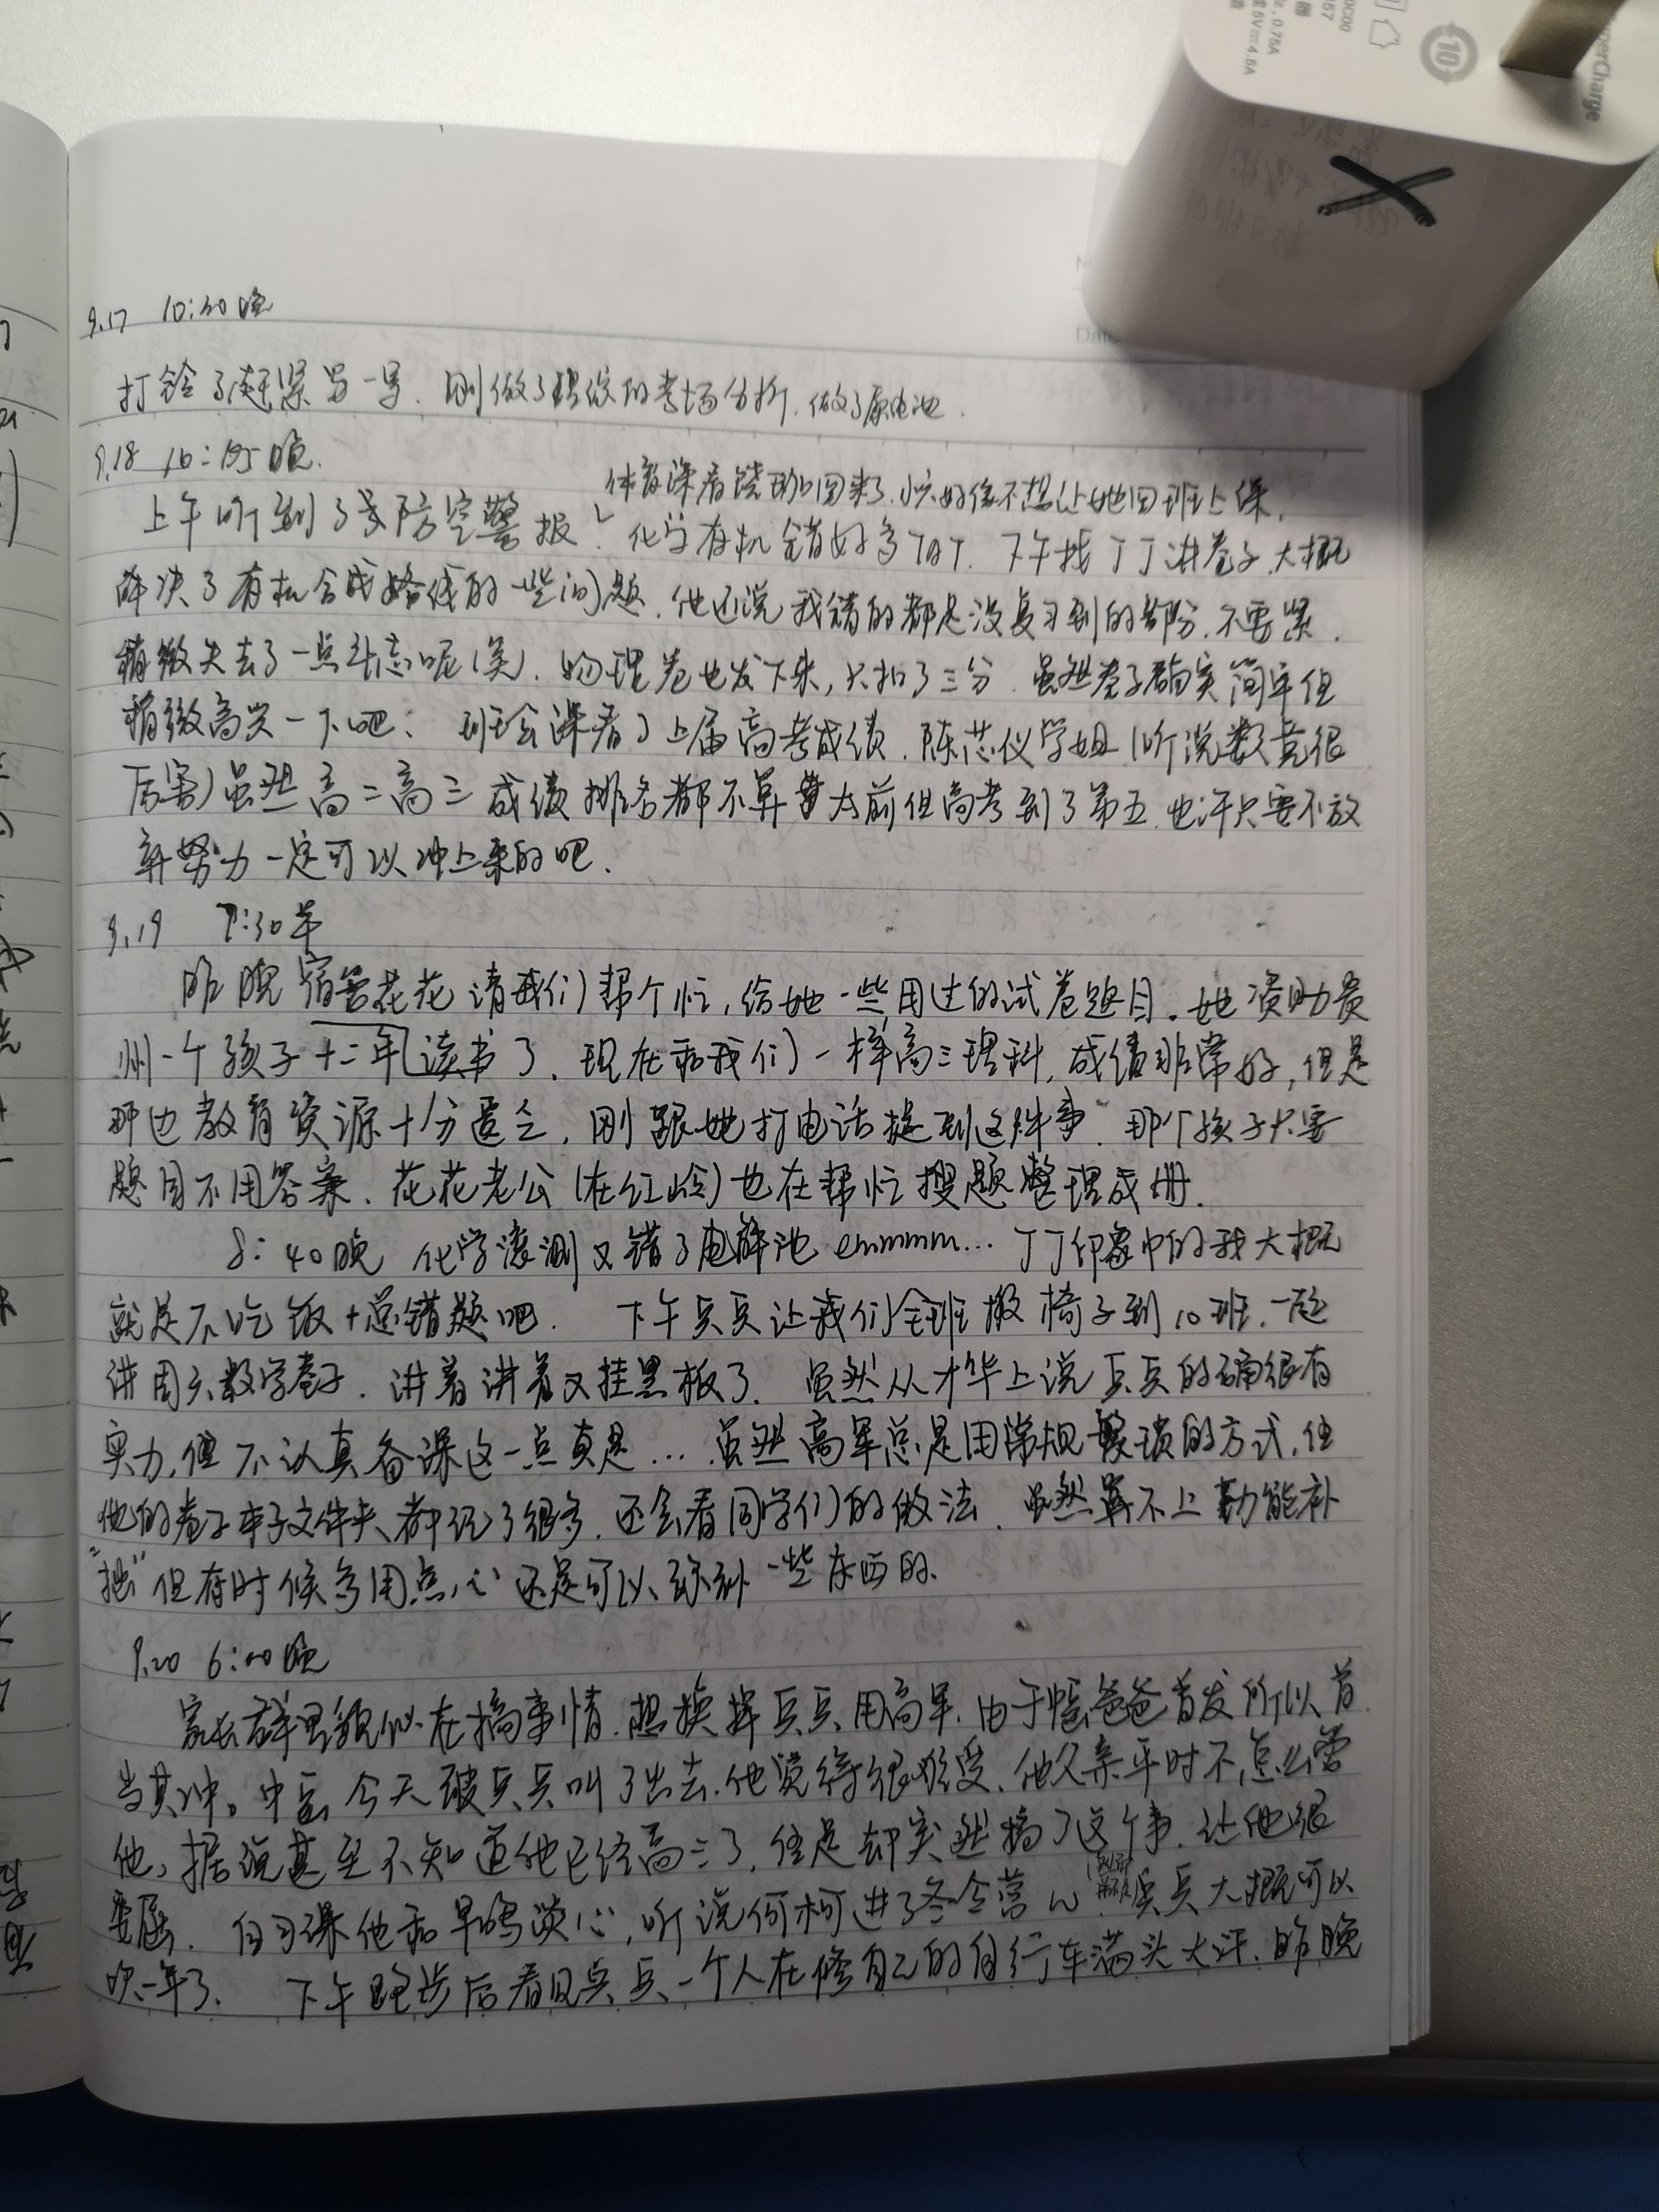 9.17 10:30晚
打铃了赶紧写一写. 刚做了 的考场分析. 做了原电池.
9.18 晚.
体育课看 回来了. 好像不想让她回班上课.
上午听到了 防空警报. 化学有机错好多TAT. 下午找丁丁讲卷子.大概
解决了有机合成路线的一些问题. 他还说我错的都是没复习到的部分.不要紧.
稍微失去了一点斗志呢(笑). 物理卷也发下来,只扣了三分. 虽然卷子确实简单但
稍微高兴一下吧: 班会课看了上届高考成绩. 陈芯仪学姐(听说数竞很
厉害)虽然高二高三成绩排名都不算 太前但高考到了第五.也许只要不放
弃努力一定可以冲上来的吧.
9.19 7:30早
昨晚宿 花花请我们帮个忙,给她一些用过的试卷题目. 她资助贵
州一个孩子十二年读书了. 现在和我们一样高三理科,成绩非常好,但是
那边教育资源十分匮乏,刚跟她打电话提到这件事. 那个孩子只要
题目不用答案. 花花老公(在红岭)也在帮忙搜题整理成册.
8:40晚 化学滚测又错了电解池emmmm... 丁丁印象中的我大概
就是不吃饭+总错题吧. 下午兵兵让我们全班搬椅子到10班.一起
讲周六数学卷子. 讲着讲着又挂黑板了. 虽然从才华上说兵兵的确很有
实力,但不认真备课这一点真是... 虽然高军总是用常规繁琐的方式,但
他的卷子本子文件夹都记了很多.还会看同学们的做法. 虽然算不上勤能补
“拙”但有时候多用点心还是可以弥补一些东西的.
9.20 6:00晚
家长群里貌似在搞事情.想换掉兵兵用高军.由于 爸爸首发所以首
当其冲。 今天被兵兵叫了出去.他觉得很难受.他父亲平时不怎么管
他,据说甚至不知道他已经高三了,但是却突然搞了这个事.让他很
委屈. 自习课他和早鸣谈心,听说何柯进了冬令营 兵兵大概可以
吹一年了. 下午跑步后看见兵兵一个人在修自己的自行车满头大汗.昨晚